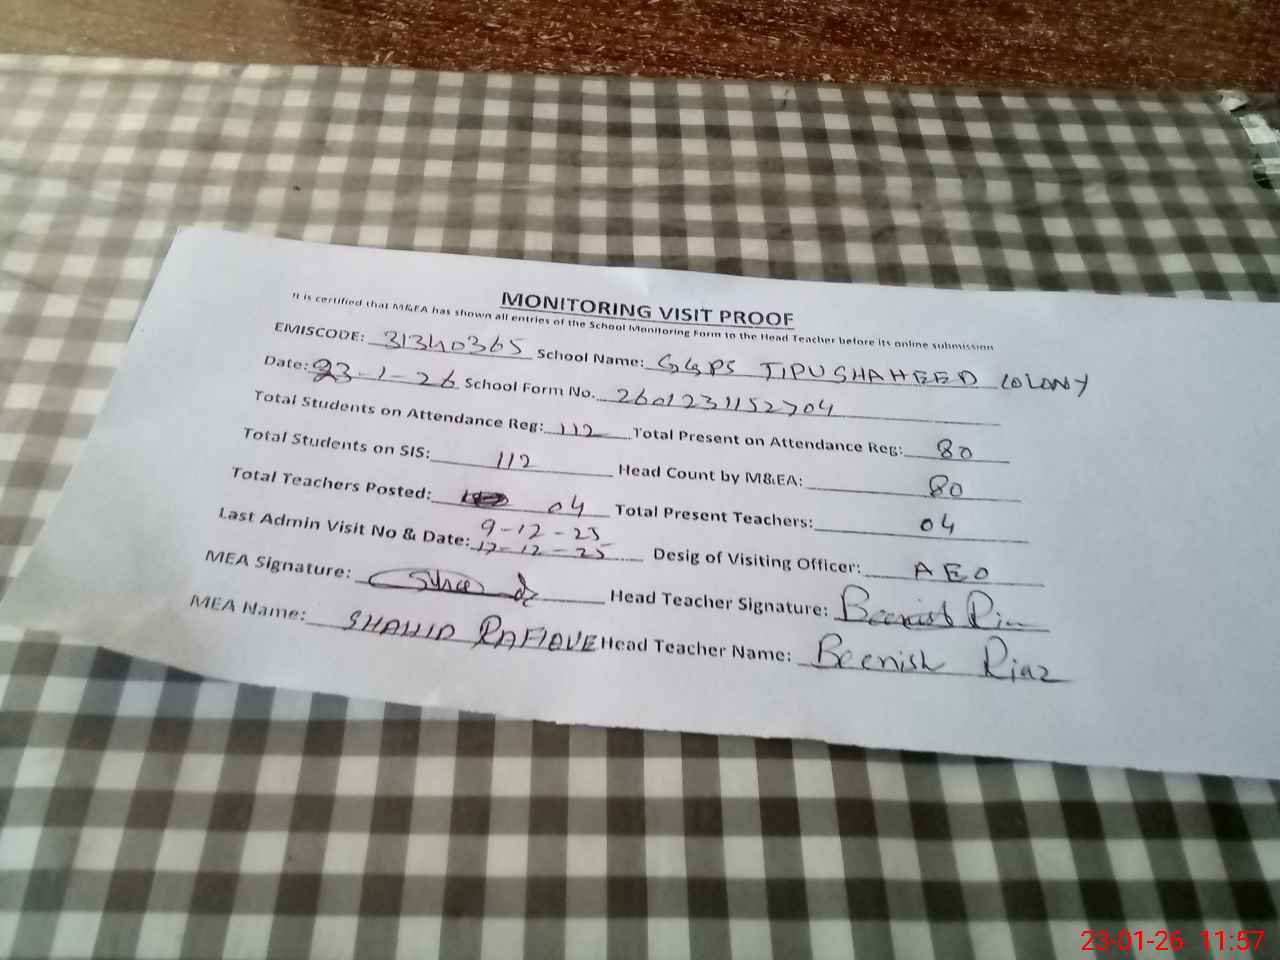 MONITORING VISIT PROOF
It is certified that M&EA has shown all entries of the School Monitoring Form to the Head Teacher before its online submission
EMISCODE: 31340365 School Name: GGPS TIPU SHAHEED COLONY
Date: 23-1-26 School Form No. 2601231152704
Total Students on Attendance Reg: 112 Total Present on Attendance Reg: 80
Total Students on SIS: 112 Head Count by M&EA: 80
Total Teachers Posted: 04 Total Present Teachers: 04
9-12-25
Last Admin Visit No & Date: 17-12-25 Desig of Visiting Officer: AEO
MEA Signature: Head Teacher Signature: Beenish
MEA Name: SHAHID RAFIQUE Head Teacher Name: Beenish Riaz
23-01-26 11:57